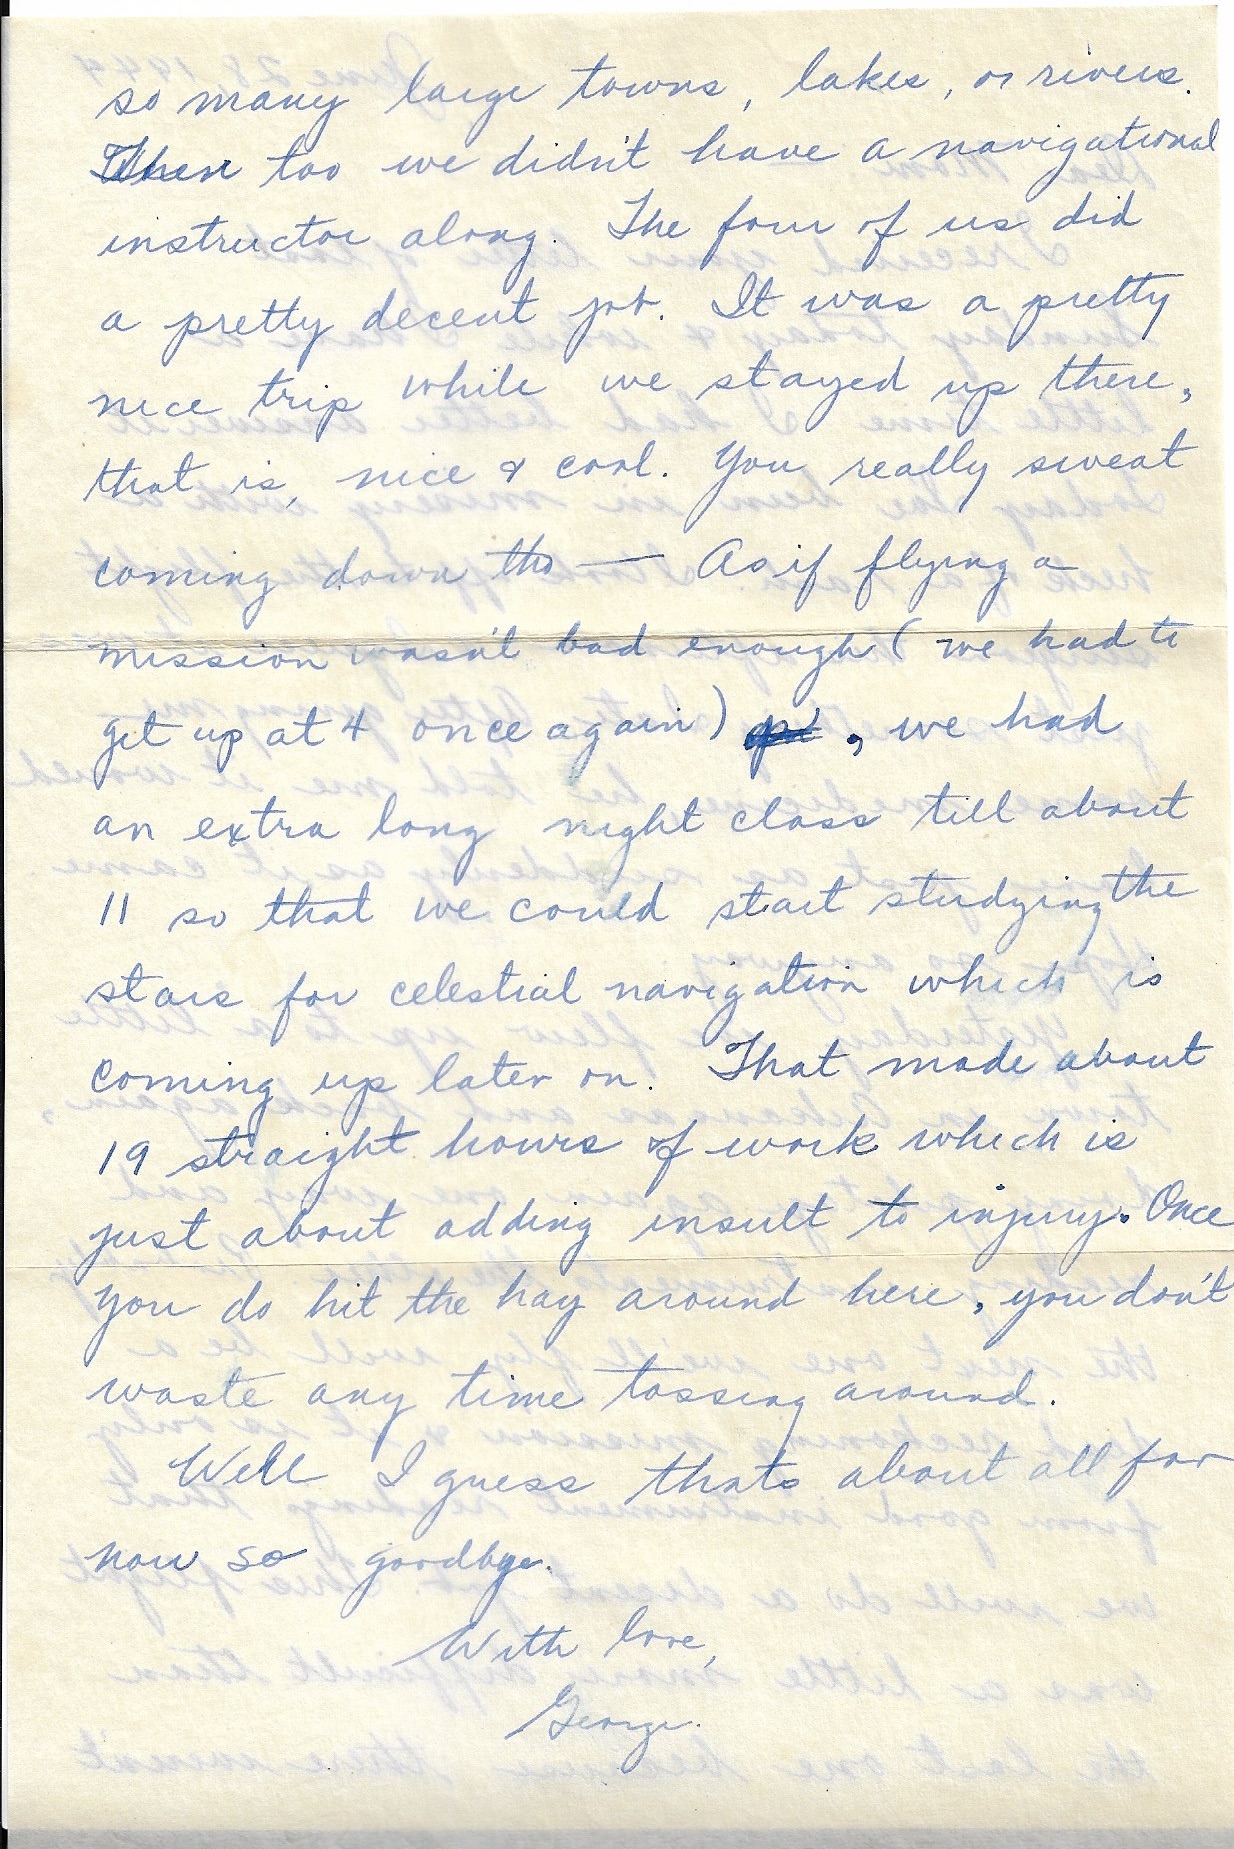 so many large towns, lakes, or rivers.
Then too we didn't have a navigational
instructor along. The four of us did
a pretty decent job. It was a pretty
nice trip while we stayed up there,
that is, nice & cool. You really sweat
coming down tho — As if flying a
mission wasn't bad enough (we had to
get up at 4 once again) , we had
an extra long night class till about
11 so that we could start studying the
stars for celestial navigation which is
coming up later on. That made about
19 straight hours of work which is
just about adding insult to injury. Once
you do hit the hay around here, you don't
waste any time tossing around.
Well I guess thats about all for
now so goodbye.
With love,
George.